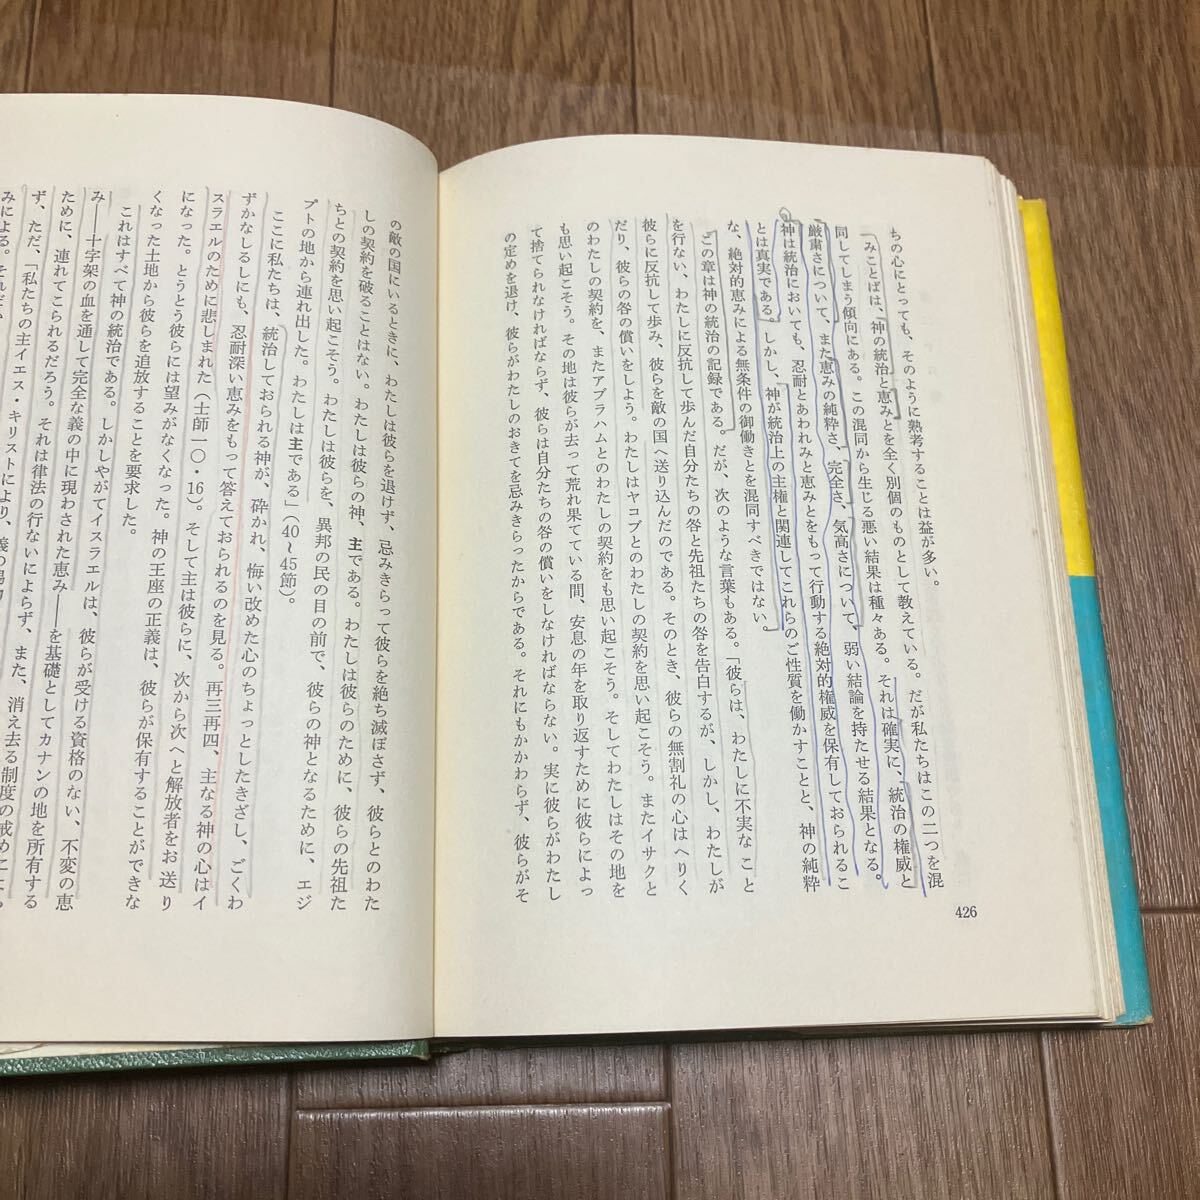 ちの心にとっても、そのように熟考することは益が多い。
みことばは、神の統治と恵みとを全く別個のものとして教えている。だが私たちはこの二つを混
同してしまう傾向にある。この混同から生じる悪い結果は種々ある。それは確実に、統治の権威と
厳粛さについて、また恵みの純粋さ、完全さ、気高さについて、弱い結論を持たせる結果となる。
神は統治においても、忍耐とあわれみと恵みとをもって行動する絶対的権威を保有しておられるこ
とは真実である。しかし、神が統治上の主権と関連してこれらのご性質を働かすことと、神の純粋
な、絶対的恵みによる無条件の御働きとを混同すべきではない。
この章は神の統治の記録である。だが、次のような言葉もある。「彼らは、わたしに不実なこと
を行ない、わたしに反抗して歩んだ自分たちの咎と先祖たちの咎を告白するが、しかし、わたしが
彼らに反抗して歩み、彼らを敵の国へ送り込んだのである。そのとき、彼らの無割礼の心はへりく
だり、彼らの咎の償いをしよう。わたしはヤコブとのわたしの契約を思い起こそう。またイサクと
のわたしの契約を、またアブラハムとのわたしの契約をも思い起こそう。そしてわたしはその地を
も思い起こそう。その地は彼らが去って荒れ果てている間、安息の年を取り返すために彼らによっ
て捨てられなければならず、彼らは自分たちの咎の償いをしなければならない。実に彼らがわたし
の定めを退け、彼らがわたしのおきてを忌みきらったからである。それにもかかわらず、彼らがそ
426
の敵の国にいるときに、わたしは彼らを退けず、忌みきらって彼らを絶ち滅ぼさず、彼らとのわた
しの契約を破ることはない。わたしは彼らの神、主である。わたしは彼らのために、彼らの先祖た
ちとの契約を思い起こそう。わたしは彼らを、異邦の民の目の前で、彼らの神となるために、エジ
プトの地から連れ出した。わたしは主である」（40〜45節）。
ここに私たちは、統治しておられる神が、砕かれ、悔い改めた心のちょっとしたきざし、ごくわ
ずかなしるしにも、忍耐深い恵みをもって答えておられるのを見る。再三再四、主なる神の心はイ
スラエルのために悲しまれた（士師一〇・16）。そして主は彼らに、次から次へと解放者をお送り
になった。とうとう彼らには望みがなくなった。神の王座の正義は、彼らが保有することができな
くなった土地から彼らを追放することを要求した。
これはすべて神の統治である。しかしやがてイスラエルは、彼らが受ける資格のない、不変の恵
み――十字架の血を通して完全な義の中に現わされた恵み――を基礎としてカナンの地を所有する
ために、連れてこられるだろう。それは律法の行ないによらず、また、消え去る制度の戒めによら
ず、ただ、「私たちの主イエス・キリストにより、
みによる。